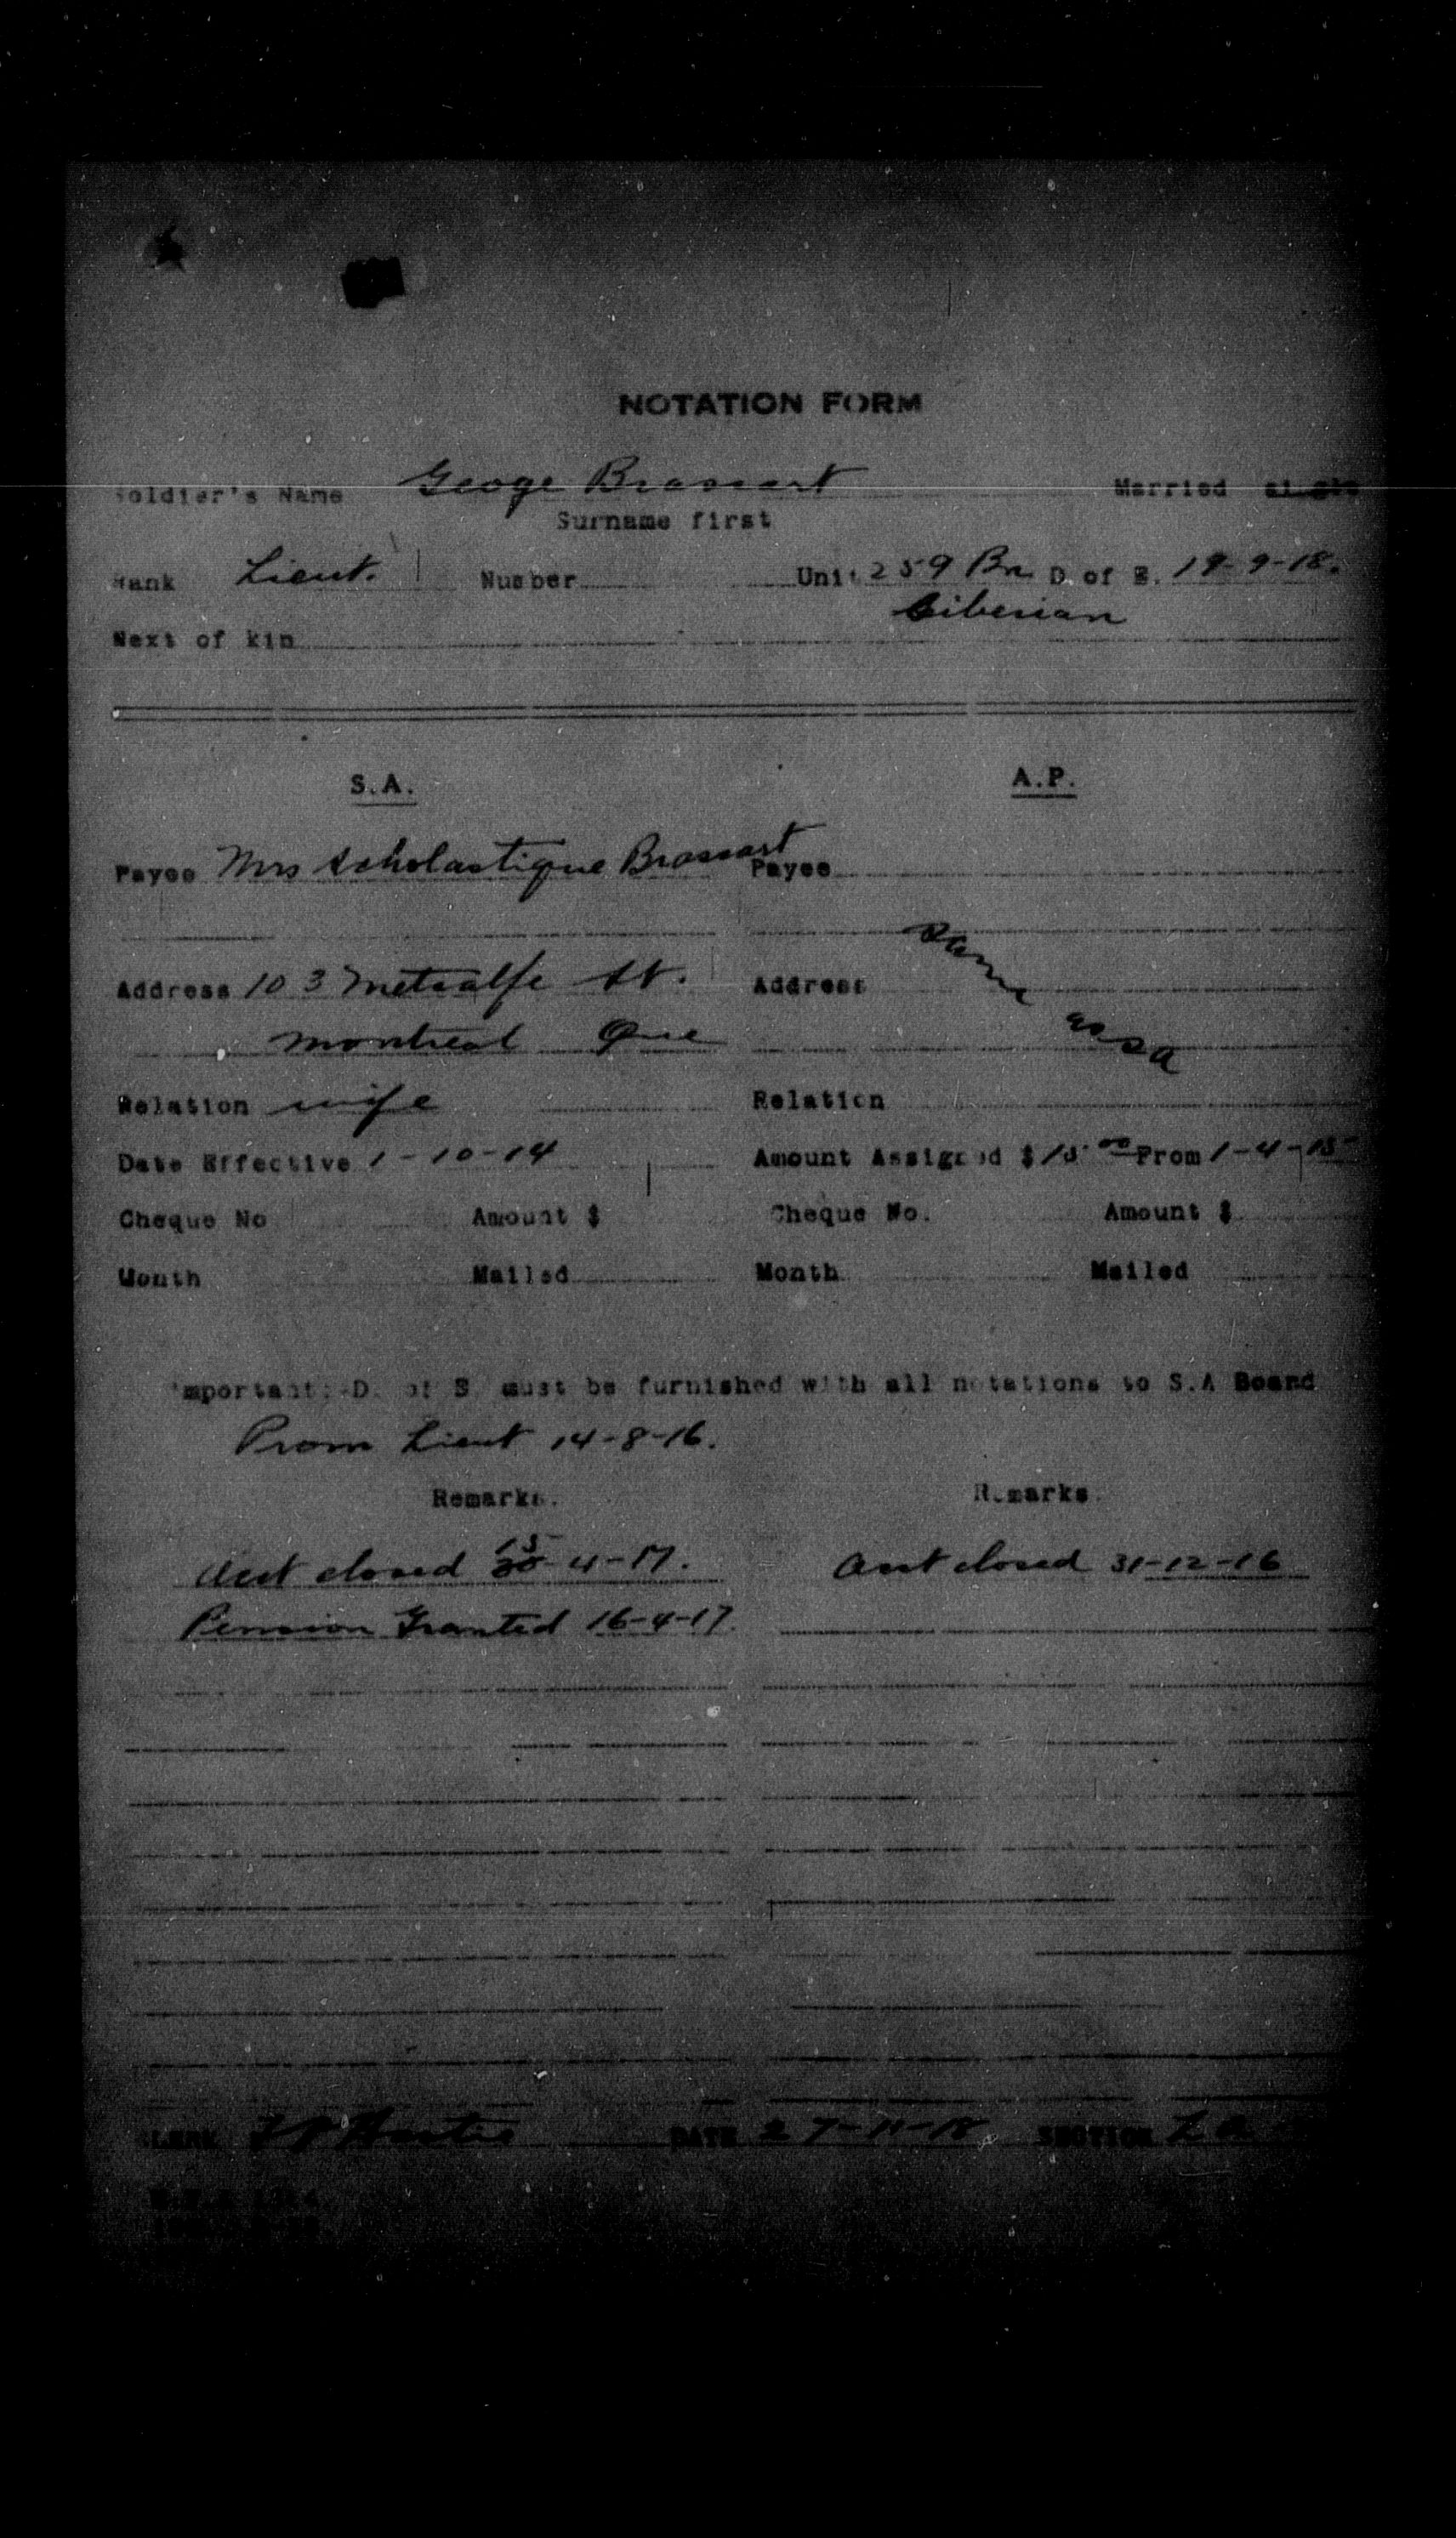 NOTATION FORM
Soldier's Name Geoge Brassart Married
Surname first
Rank Lieut. Number Unit 259 Bn D. of E. 19-9-18.
Siberian
Next of kin
S.A. A.P.
Payee Mrs Scholastique Brassart Payee
Address 103 Metcalfe St. Address same as SA
Montreal Que
Relation wife Relation
Date Effective 1-10-14 Amount Assigned $15.00 From 1-4-15
Cheque No Amount $ Cheque No. Amount $
Month Mailed Month Mailed
Important: D. of E. must be furnished with all notations to S.A Board
Prom Lieut 14-8-16.
Remarks. Remarks.
Acct closed 30 15-4-17. Acct closed 31-12-16
Pension Granted 16-4-17.
CLERK DATE 27-11-18 SECTION